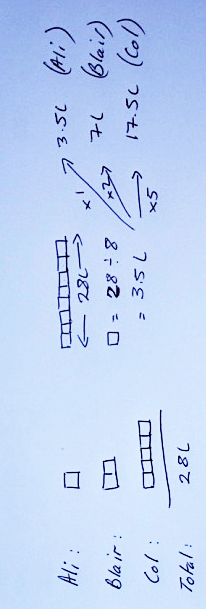 Ali:
Blair:
Col:
Total: 28L
← 28L →
□ = 28 ÷ 8
= 3.5L
×1 3.5L (Ali)
×2 7L (Blair)
×5 17.5L (Col)